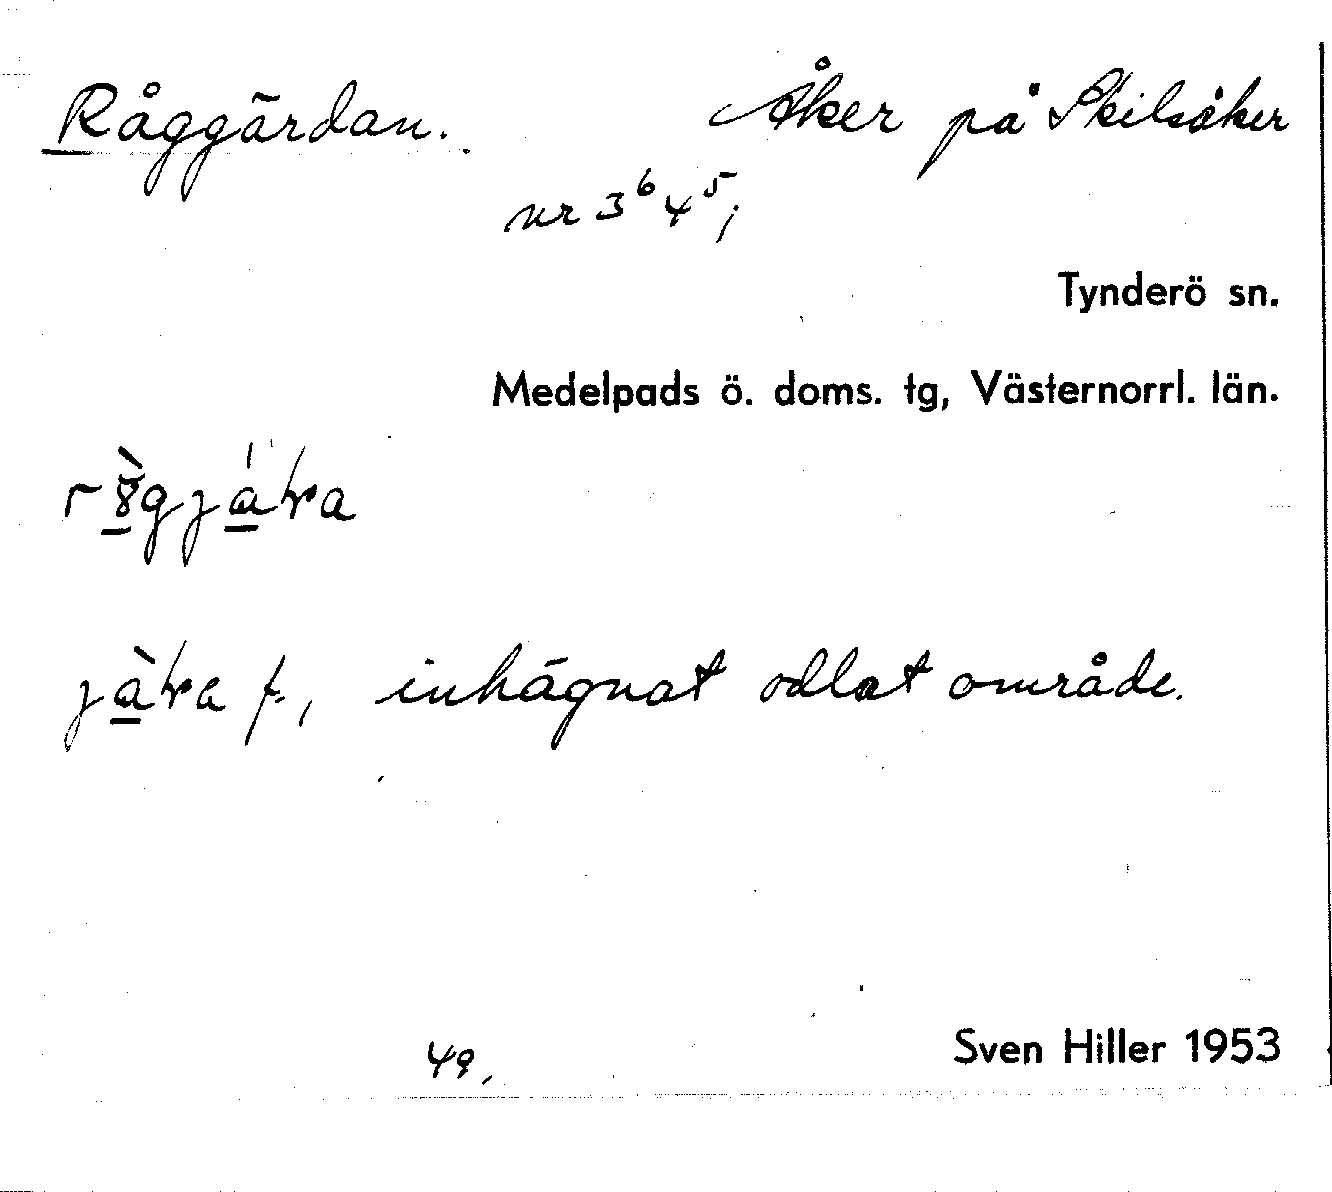 Råggärdan. Åker på Skilsåker
nr 3⁶ 4⁵;
Tynderö sn.
Medelpads ö. doms. tg, Västernorrl. län.
f., inhägnat odlat område.
49.
Sven Hiller 1953